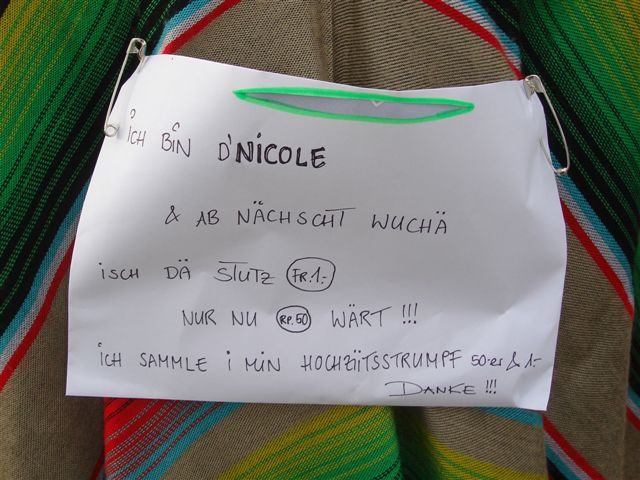 ich bin d'NICOLE
& AB NÄCHSCHT WUCHÄ
isch DÄ STUTZ FR.1.-
NUR NU RP.50 WÄRT !!!
ich SAMMLE i MiN HOCHZiiTSSTRUMPF 50-er & 1.-
DANKE !!!